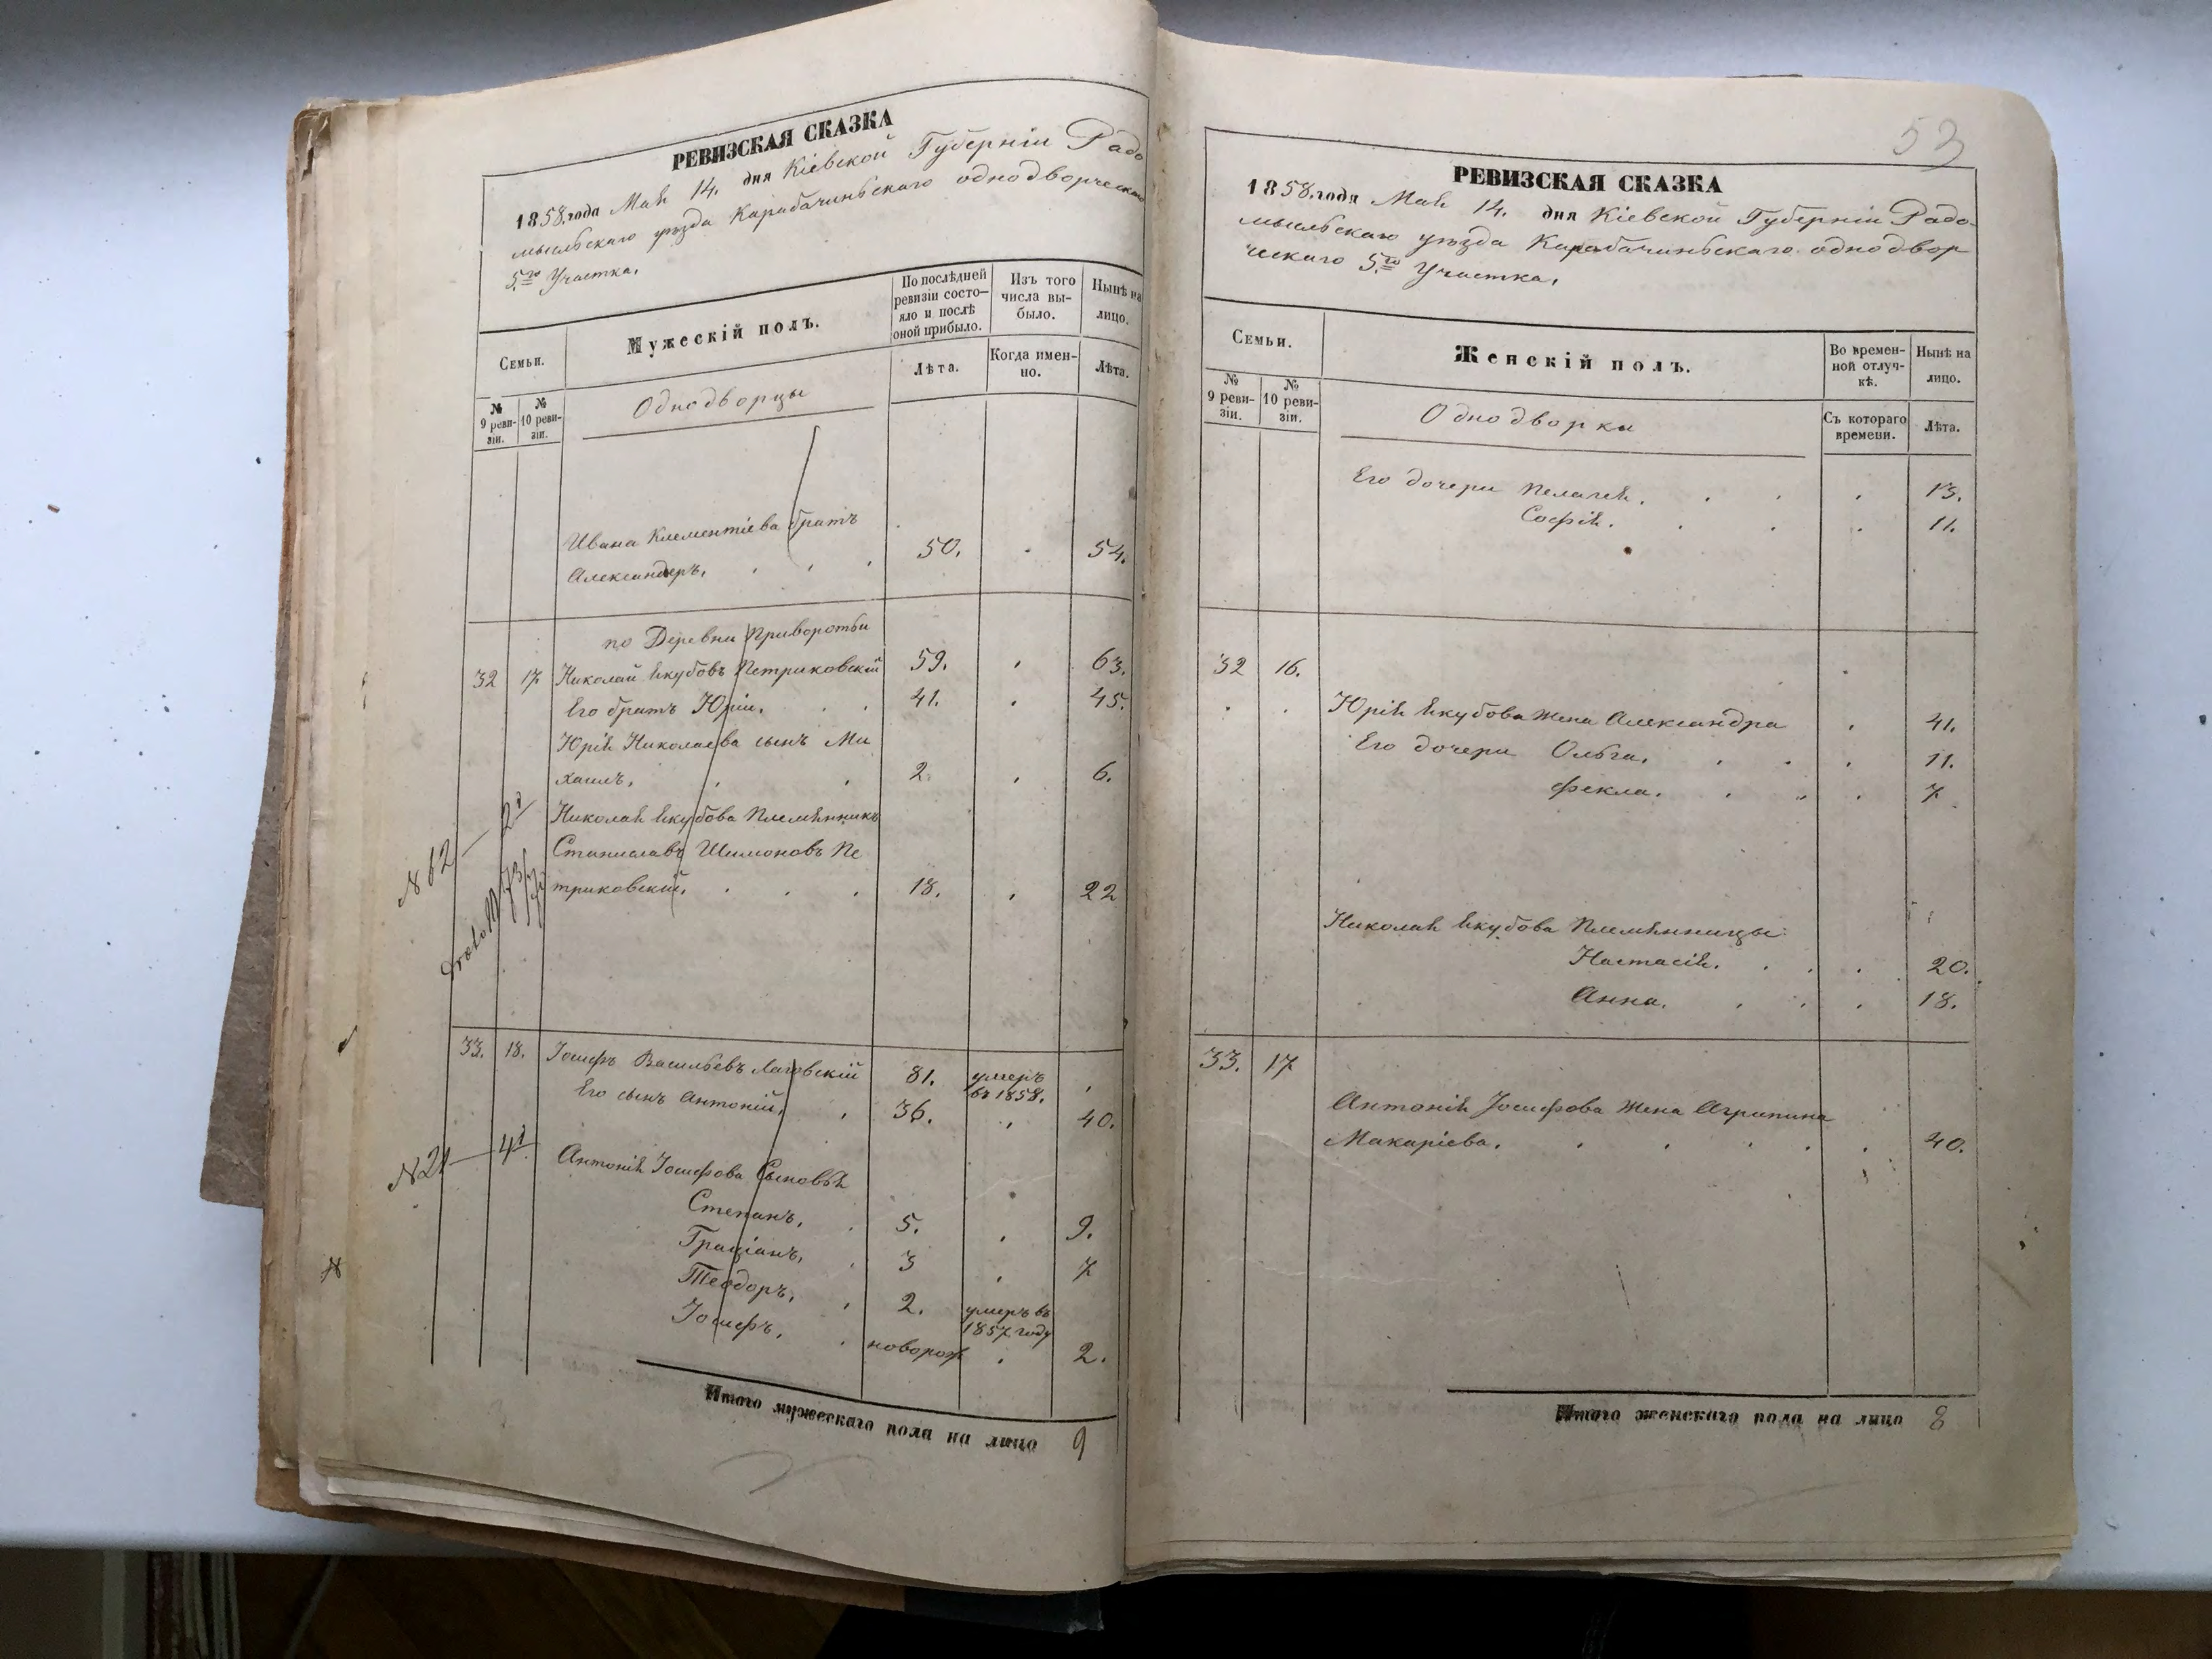 РЕВИЗСКАЯ СКАЗКА
1858.года Маія 14. дня Кіевской Губерніи Радо
мысльскаго уѣзда Карабачиньскаго однодворческаго
5.го Участка.
Семьи.
Мужескій полъ.
По послѣдней ревизіи состояло и послѣ оной прибыло.
Изъ того числа выбыло.
Нынѣ на лицо.
№ 9 ревизіи.
№ 10 ревизіи.
Однодворцы
Лѣта.
Когда именно.
Лѣта.
Ивана Клементіева братъ
Александеръ. 50. 54.
по Деревни Приворотьи
32 17. Николай Якубовъ Петриковскій 59. 63.
Его братъ Юрій. 41. 45.
Юрія Николаева сынъ Ми
хаилъ. 2. 6.
Николая Якубова Племянникъ
Станиславъ Шимоновъ Пе
триковскій. 18. 22
N 62
33. 18. Іосифъ Васильевъ Лаговскій 81. умеръ
въ 1858.
Его сынъ Антоній. 36. 40.
N 21
Антонія Іосифова Сыновья
Степанъ. 5. 9.
Граціанъ. 3 7
Теодоръ. 2. умеръ въ
1857 году
Іосифъ. новорож 2.
Итого мужескаго пола на лицо 9
53
РЕВИЗСКАЯ СКАЗКА
1858.года Маія 14. дня Кіевской Губерніи Радо-
мысльскаго уѣзда Карабачиньскаго однодвор
ческаго 5.го Участка.
Семьи.
Женскій полъ.
Во временной отлучкѣ.
Нынѣ на лицо.
№ 9 ревизіи.
№ 10 ревизіи.
Однодворки
Съ котораго времени.
Лѣта.
Его дочери Пелагея. 13.
Софія. 11.
32 16.
Юрія Якубова жена Александра 41.
Его дочери Ольга. 11.
Фекла. 7.
Николая Якубова Племянницы
Настасія. 20.
Анна. 18.
33. 17
Антонія Іосифова жена Агрипина
Макаріева. 40.
Итого женскаго пола на лицо 8